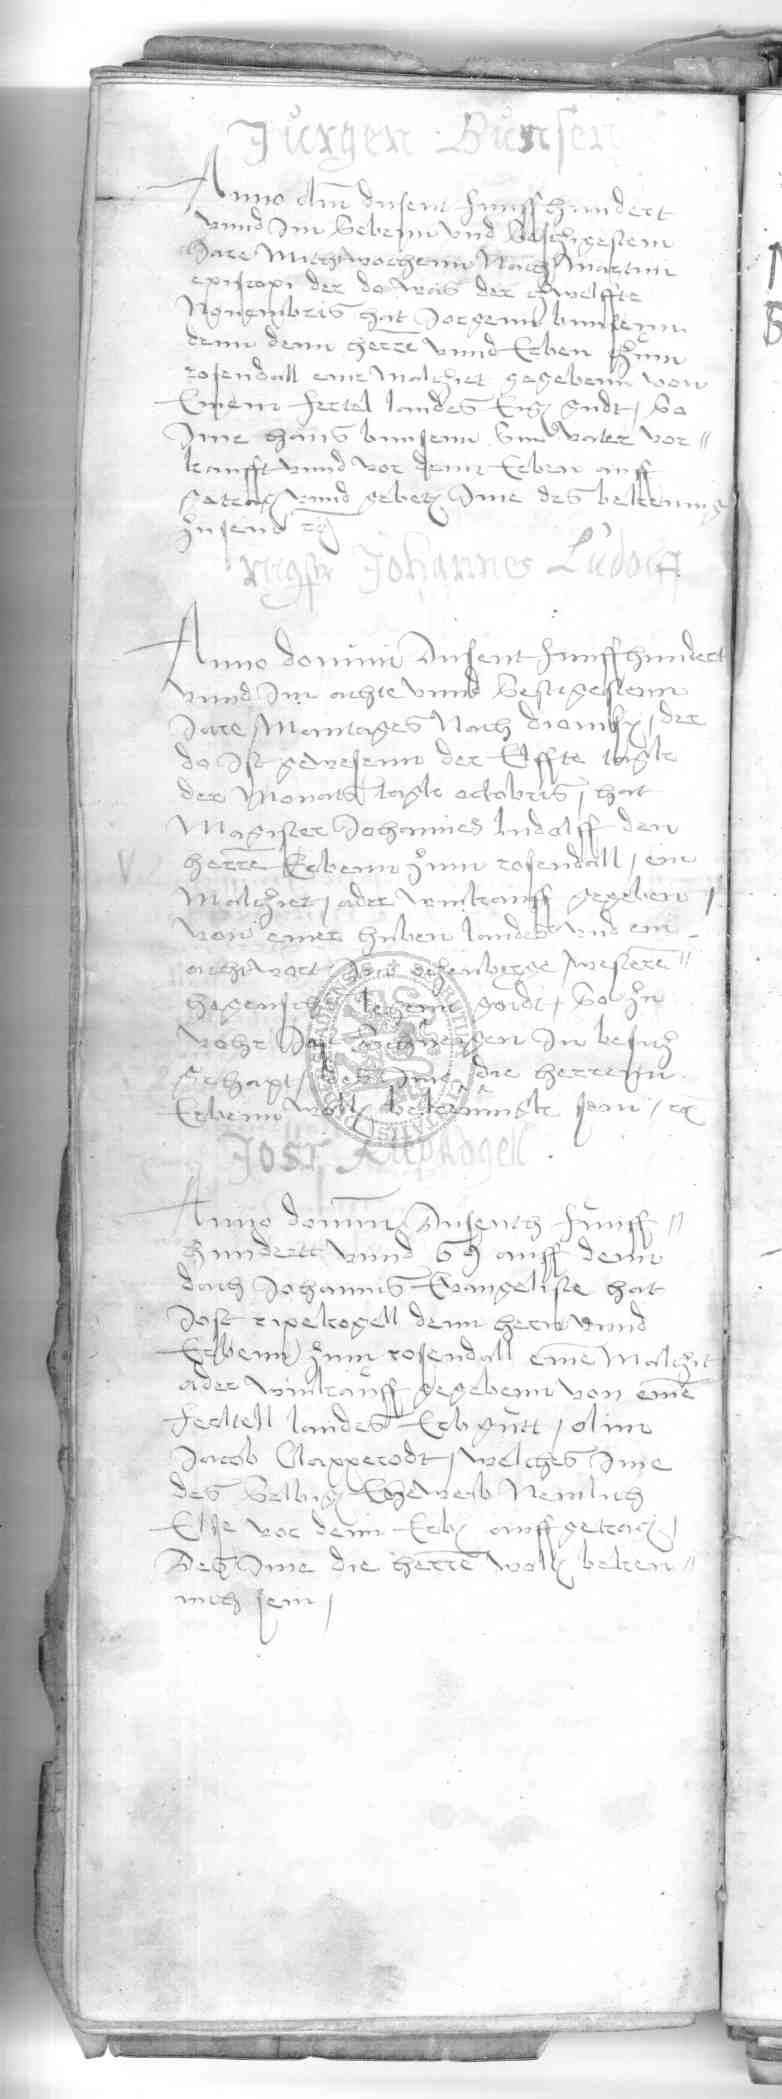 Jurgen Bunsen
Anno dm̄ dusent funffhundert
vnnd Im Sebenn vnd Sestzigestenn
Jare Mitthwochenn Nach Martini
episcopi der do was der zwelffte
Nouembris hat Jorgenn bunsenn
denn denn herre vnnd Erben zum
rosendall eine Maltziet gegebenn von
Einem fertel landes Erb gudt, So
Ime hans bunsenn Sin vater vor⸗
kaufft vnnd vor denn Erben auff
getrag vnnd gebet Ime des bekennig
zu send
mgstr Johannes Ludolff
Anno domini Dusent funffhundert
vnnd Im achte vnnd Sestigestenn
Jare Montages Nach dionisy, der
do Ist gewesenn der Elffte tagk
der Monats tagk octobris, hat
Magister Johannes ludolff den
herre Erbenn zum rosendall, ein
Maltziet, ader winkauff gegeben,
von einer huben landes vnd ein
acht wort
hagensch gordt, So zu
In besitz
gehapt, des Ime die herrenn
Erbenn woll bekenningk sein,
Jost Ripekogell
Anno domini Dusenth funff⸗
hundertt vnnd 69 auff denn
dach Johannis Evangeliste hat
Jost ripekogell denn hern vnnd
Erbenn zum rosendall eine Maltziet
ader winkauff gegebenn von eine
fertell landes Erb gutt, olim
Jacob Clapperodt, welches Ime
des Selbig Eheweib Nemlich
Else vor denn Erb auffgetrag,
Des Ime die herre woll beken⸗
nich sein,